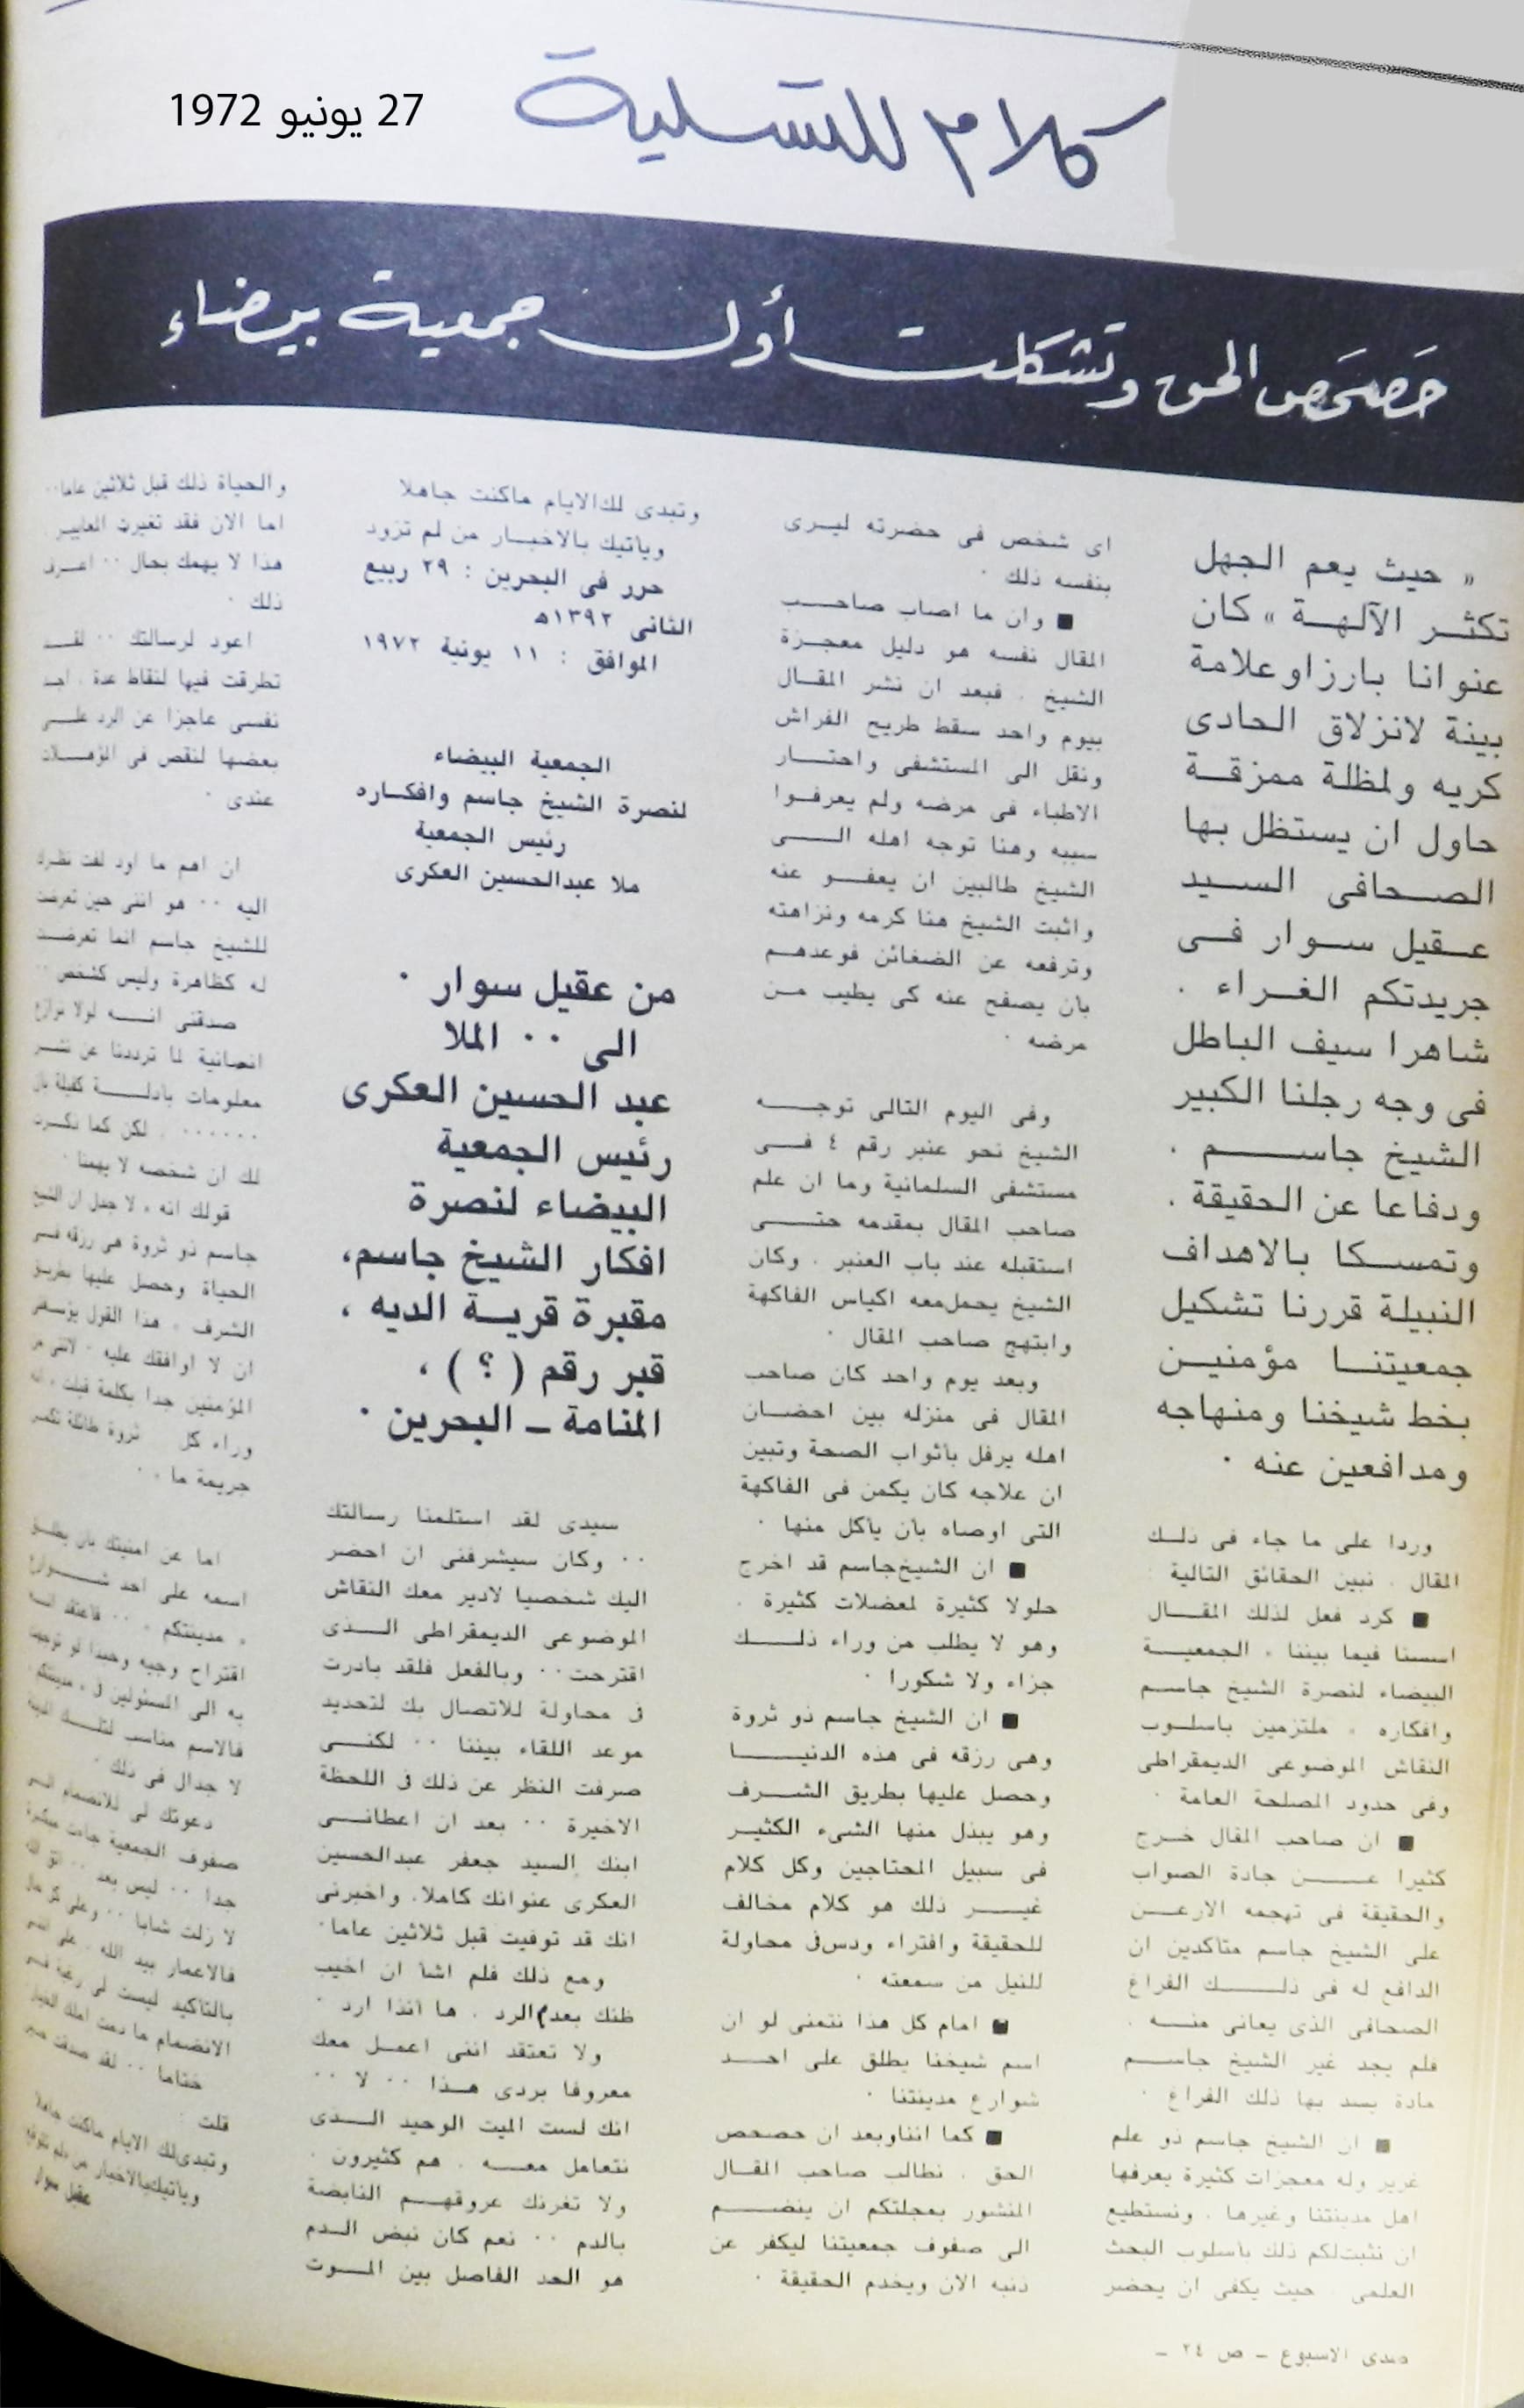 كلام للتسلية
27 يونيو 1972
حَصحَص الحق وتشكلت أول جمعية بيضاء
« حيث يعم الجهل
تكثر الآلهة » كان
عنوانا بارزا وعلامة
بينة لانزلاق الحادى
كريه ولمظلة ممزقة
حاول ان يستظل بها
الصحافى السيد
عقيل سوار فى
جريدتكم الغراء .
شاهرا سيف الباطل
فى وجه رجلنا الكبير
الشيخ جاسم .
ودفاعا عن الحقيقة .
وتمسكا بالاهداف
النبيلة قررنا تشكيل
جمعيتنا مؤمنين
بخط شيخنا ومنهاجه
ومدافعين عنه .
وردا على ما جاء فى ذلك
المقال . نبين الحقائق التالية
■ كرد فعل لذلك المقال
اسسنا فيما بيننا . الجمعية
البيضاء لنصرة الشيخ جاسم
وافكاره . ملتزمين باسلوب
النقاش الموضوعى الديمقراطى
وفى حدود المصلحة العامة .
■ ان صاحب المقال خرج
كثيرا عن جادة الصواب
والحقيقة فى تهجمه الارعن
على الشيخ جاسم متأكدين ان
الدافع له فى ذلك الفراغ
الصحافى الذى يعانى منه .
فلم يجد غير الشيخ جاسم
مادة يسد بها ذلك الفراغ .
■ ان الشيخ جاسم ذو علم
غزير وله معجزات كثيرة يعرفها
اهل مدينتنا وغيرها . ونستطيع
ان نثبت لكم ذلك باسلوب البحث
العلمى . حيث يكفى ان يحضر
صدى الاسبوع – ص ٢٤ –
اى شخص فى حضرته ليرى
بنفسه ذلك .
■ وان ما اصاب صاحب
المقال نفسه هو دليل معجزة
الشيخ . فبعد ان نشر المقال
بيوم واحد سقط طريح الفراش
ونقل الى المستشفى واحتار
الاطباء فى مرضه ولم يعرفوا
سببه وهنا توجه اهله الى
الشيخ طالبين ان يعفو عنه
واثبت الشيخ هنا كرمه ونزاهته
وترفعه عن الضغائن فوعدهم
بان يصفح عنه كى يطيب من
مرضه .
وفى اليوم التالى توجه
الشيخ نحو عنبر رقم ٤ فى
مستشفى السلمانية وما ان علم
صاحب المقال بمقدمه حتى
استقبله عند باب العنبر . وكان
الشيخ يحمل معه اكياس الفاكهة
وابتهج صاحب المقال .
وبعد يوم واحد كان صاحب
المقال فى منزله بين احضان
اهله يرفل بأثواب الصحة وتبين
ان علاجه كان يكمن فى الفاكهة
التى اوصاه بأن يأكل منها .
■ ان الشيخ جاسم قد اخرج
حلولا كثيرة لمعضلات كثيرة .
وهو لا يطلب من وراء ذلك
جزاء ولا شكورا .
■ ان الشيخ جاسم ذو ثروة
وهى رزقه فى هذه الدنيا
وحصل عليها بطريق الشرف
وهو يبذل منها الشىء الكثير
فى سبيل المحتاجين وكل كلام
غير ذلك هو كلام مخالف
للحقيقة وافتراء ودس فى محاولة
للنيل من سمعته .
■ امام كل هذا نتمنى لو ان
اسم شيخنا يطلق على احد
شوارع مدينتنا .
■ كما اننا وبعد ان حصحص
الحق . نطالب صاحب المقال
المنشور بمجلتكم ان ينضم
الى صفوف جمعيتنا ليكفر عن
ذنبه الان ويخدم الحقيقة .
وتبدى لك الايام ماكنت جاهلا
ويأتيك بالاخبار من لم تزود
حرر فى البحرين : ٢٩ ربيع
الثانى ١٣٩٢ه
الموافق : ١١ يونية ١٩٧٢
الجمعية البيضاء
لنصرة الشيخ جاسم وافكاره
رئيس الجمعية
ملا عبدالحسين العكرى
من عقيل سوار .
الى .. الملا
عبد الحسين العكرى
رئيس الجمعية
البيضاء لنصرة
افكار الشيخ جاسم،
مقبرة قرية الديه ،
قبر رقم ( ؟ ) ،
المنامة – البحرين .
سيدى لقد استلمنا رسالتك
.. وكان سيشرفنى ان احضر
اليك شخصيا لادير معك النقاش
الموضوعى الديمقراطى الذى
اقترحت .. وبالفعل فلقد بادرت
فى محاولة للاتصال بك لتحديد
موعد اللقاء بيننا .. لكنى
صرفت النظر عن ذلك فى اللحظة
الاخيرة .. بعد ان اعطانى
ابنك السيد جعفر عبدالحسين
العكرى عنوانك كاملا. واخبرنى
انك قد توفيت قبل ثلاثين عاما .
ومع ذلك فلم اشأ ان اخيب
ظنك بعدم الرد . ها أنذا ارد .
ولا تعتقد اننى اعمل معك
معروفا بردى هذا .. لا ..
انك لست الميت الوحيد الذى
نتعامل معه . هم كثيرون .
ولا تغرنك عروقهم النابضة
بالدم .. نعم كان نبض الدم
هو الحد الفاصل بين الموت
والحياة ذلك قبل ثلاثين عاما ..
اما الان فقد تغيرت المعايير
هذا لا يهمك بحال .. اعرف
ذلك .
اعود لرسالتك .. لقد
تطرقت فيها لنقاط عدة . اجد
نفسى عاجزا عن الرد على
بعضها لنقص فى المؤهلات
عندى .
ان اهم ما اود لفت نظرك
اليه .. هو اننى حين تعرضت
للشيخ جاسم انما تعرضت
له كظاهرة وليس كشخص ..
صدقنى انه لولا نوازع
انسانية لما ترددنا عن نشر
معلومات بأدلة كفيلة بان
...... . لكن كما ذكرت
لك ان شخصه لا يهمنا .
قولك انه « لا جدل ان الشيخ
جاسم ذو ثروة هى رزقه فى
الحياة وحصل عليها بطريق
الشرف » هذا القول يؤسفنى
ان لا اوافقك عليه . لاننى من
المؤمنين جدا بكلمة قيلت « انه
وراء كل ثروة طائلة تكمن
جريمة ما » .
اما عن امنيتك بان يطلق
اسمه على احد شوارع
« مدينتكم » .. فأعتقد انه
اقتراح وجيه وحبذا لو توجهت
به الى المسئولين فى « مدينتكم »
فالاسم مناسب لتلك المدينة
لا جدال فى ذلك .
دعوتك لى للانضمام الى
صفوف الجمعية جاءت مبكرة
جدا .. ليس بعد .. اتق الله
لا زلت شابا .. وعلى كل حال
فالاعمار بيد الله . على اننى
بالتأكيد ليست لى رغبة فى
الانضمام ما دمت املك الخيار
ختاما .. لقد صدقت حين
قلت :
وتبدى لك الايام ماكنت جاهلا
ويأتيك بالاخبار من لم
عقيل سوار